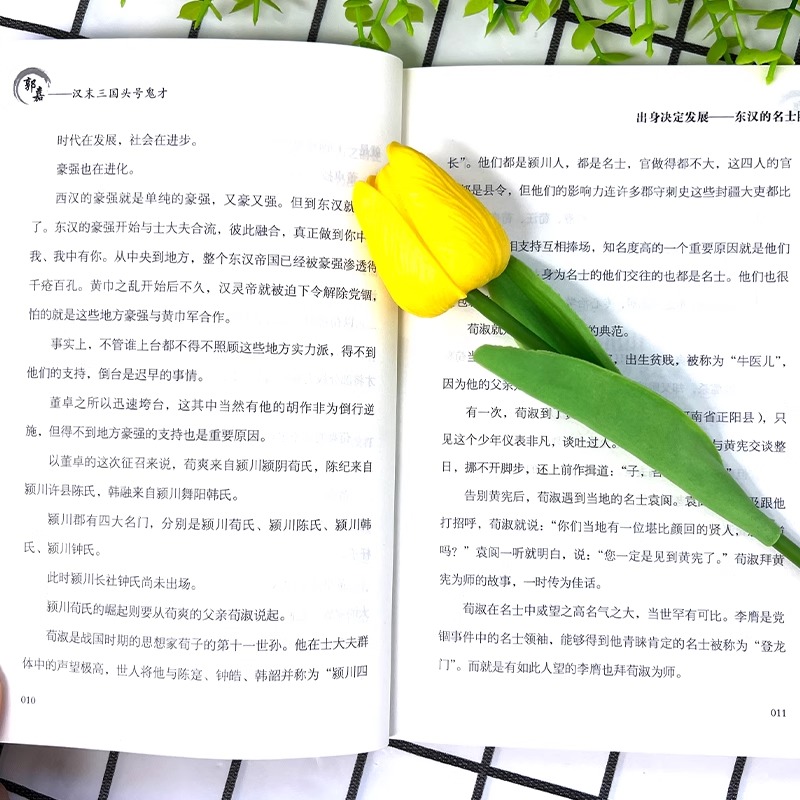 郭嘉——汉末三国头号鬼才
时代在发展，社会在进步。
豪强也在进化。
西汉的豪强就是单纯的豪强，又豪又强。但到东汉就
了。东汉的豪强开始与士大夫合流，彼此融合，真正做到你中
我、我中有你。从中央到地方，整个东汉帝国已经被豪强渗透得
千疮百孔。黄巾之乱开始后不久，汉灵帝就被迫下令解除党锢，
怕的就是这些地方豪强与黄巾军合作。
事实上，不管谁上台都不得不照顾这些地方实力派，得不到
他们的支持，倒台是迟早的事情。
董卓之所以迅速垮台，这其中当然有他的胡作非为倒行逆
施，但得不到地方豪强的支持也是重要原因。
以董卓的这次征召来说，荀爽来自颍川颍阴荀氏，陈纪来自
颍川许县陈氏，韩融来自颍川舞阳韩氏。
颍川郡有四大名门，分别是颍川荀氏、颍川陈氏、颍川韩
氏、颍川钟氏。
此时颍川长社钟氏尚未出场。
颍川荀氏的崛起则要从荀爽的父亲荀淑说起。
荀淑是战国时期的思想家荀子的第十一世孙。他在士大夫群
体中的声望极高，世人将他与陈寔、钟皓、韩韶并称为“颍川四
010
出身决定发展——东汉的名士
长”。他们都是颍川人，都是名士，官做得都不大，这四人的官
都是县令，但他们的影响力连许多郡守刺史这些封疆大吏都比
相支持互相捧场，知名度高的一个重要原因就是他们
身为名士的他们交往的也都是名士。他们也很
荀淑就 的典范。
当 ，出生贫贱，被称为“牛医儿”，
因为他的父亲
有一次，荀淑到了 河南省正阳县），只
见这个少年仪表非凡，谈吐过人。 与黄宪交谈整
日，挪不开脚步，还上前作揖道：“子， ”
告别黄宪后，荀淑遇到当地的名士袁阆。 及跟他
打招呼，荀淑就说：“你们当地有一位堪比颜回的贤人，
吗？”袁阆一听就明白，说：“您一定是见到黄宪了。”荀淑拜黄
宪为师的故事，一时传为佳话。
荀淑在名士中威望之高名气之大，当世罕有可比。李膺是党
锢事件中的名士领袖，能够得到他青睐肯定的名士被称为“登龙
门”。而就是有如此人望的李膺也拜荀淑为师。
011